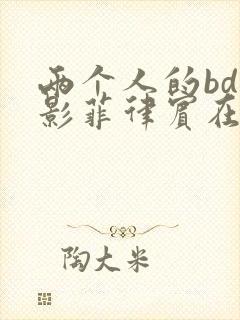 两个人的bd
影菲律宾在
陶大米